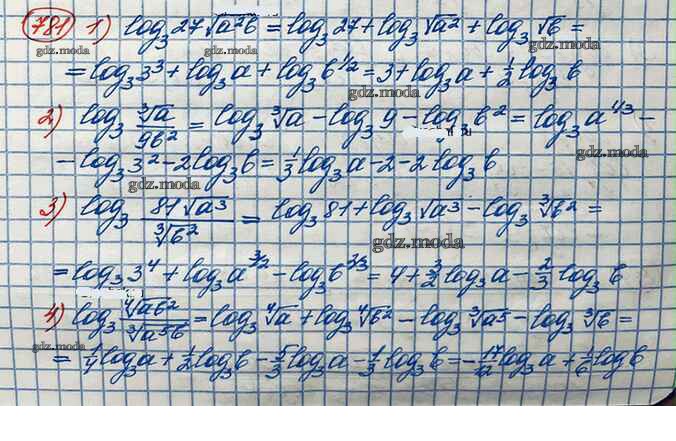 781 1) log₃27√a²b = log₃27 + log₃√a² + log₃√b =
gdz.moda gdz.moda
= log₃3³ + log₃a + log₃b^1/2 = 3 + log₃a + 1/2 log₃b
gdz.moda
2) log₃ ∛a/9b² = log₃∛a - log₃9 - log₃b² = log₃a^1/3 -
gdz.moda
- log₃3² - 2log₃b = 1/3 log₃a - 2 - 2log₃b
gdz.moda
3) log₃ 81√a³/∛b² = log₃81 + log₃√a³ - log₃∛b² =
gdz.moda
= log₃3⁴ + log₃a^3/2 - log₃b^2/3 = 4 + 3/2 log₃a - 2/3 log₃b
4) log₃ ∜ab²/∛a⁵b = log₃∜a + log₃∜b² - log₃∛a⁵ - log₃∛b =
gdz.moda
= 1/4 log₃a + 1/2 log₃b - 5/3 log₃a - 1/3 log₃b = -17/12 log₃a + 1/6 log b